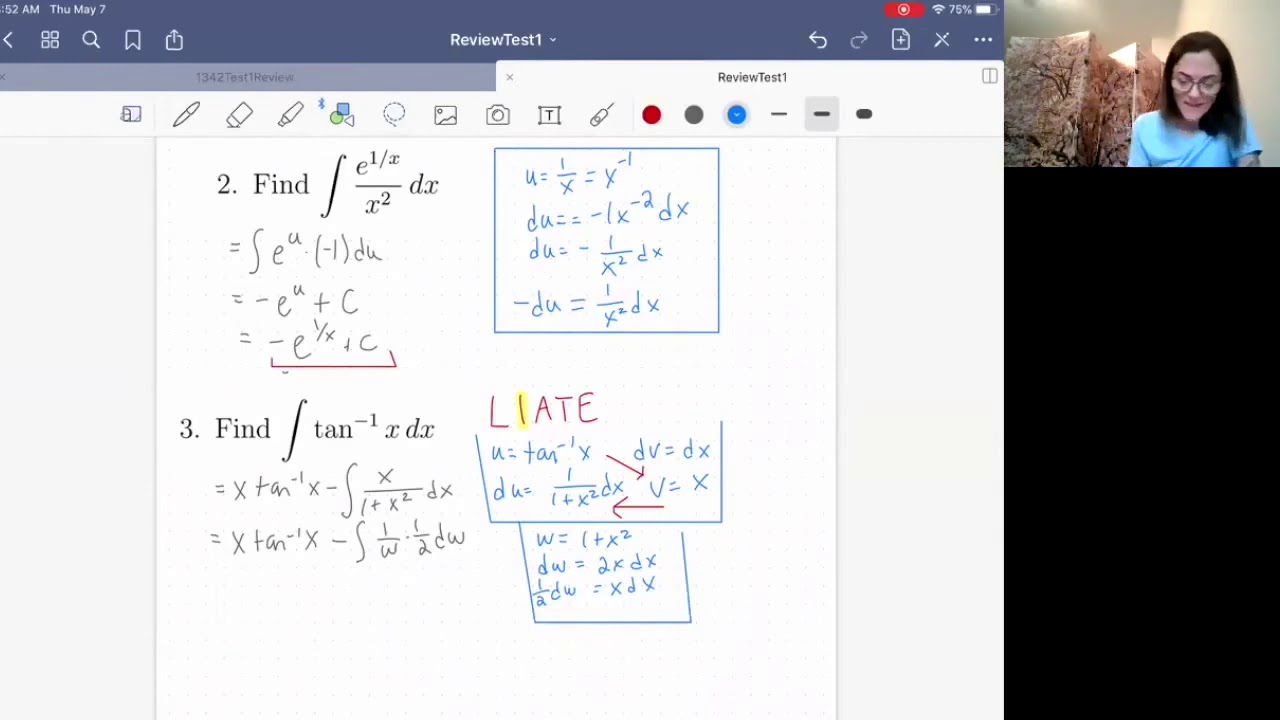 :52 AM Thu May 7
75%
ReviewTest1
1342Test1Review
ReviewTest1
T
2. Find ∫ e^{1/x}/x² dx
= ∫ e^u · (-1) du
= -e^u + C
= -e^{1/x} + C
u = 1/x = x^{-1}
du = = -1x^{-2} dx
du = - 1/x² dx
-du = 1/x² dx
3. Find ∫ tan⁻¹ x dx
= x tan⁻¹x - ∫ x/(1+x²) dx
= x tan⁻¹x - ∫ 1/w · 1/2 dw
LIATE
u = tan⁻¹x dv = dx
du = 1/(1+x²) dx v = x
w = 1+x²
dw = 2x dx
1/2 dw = x dx